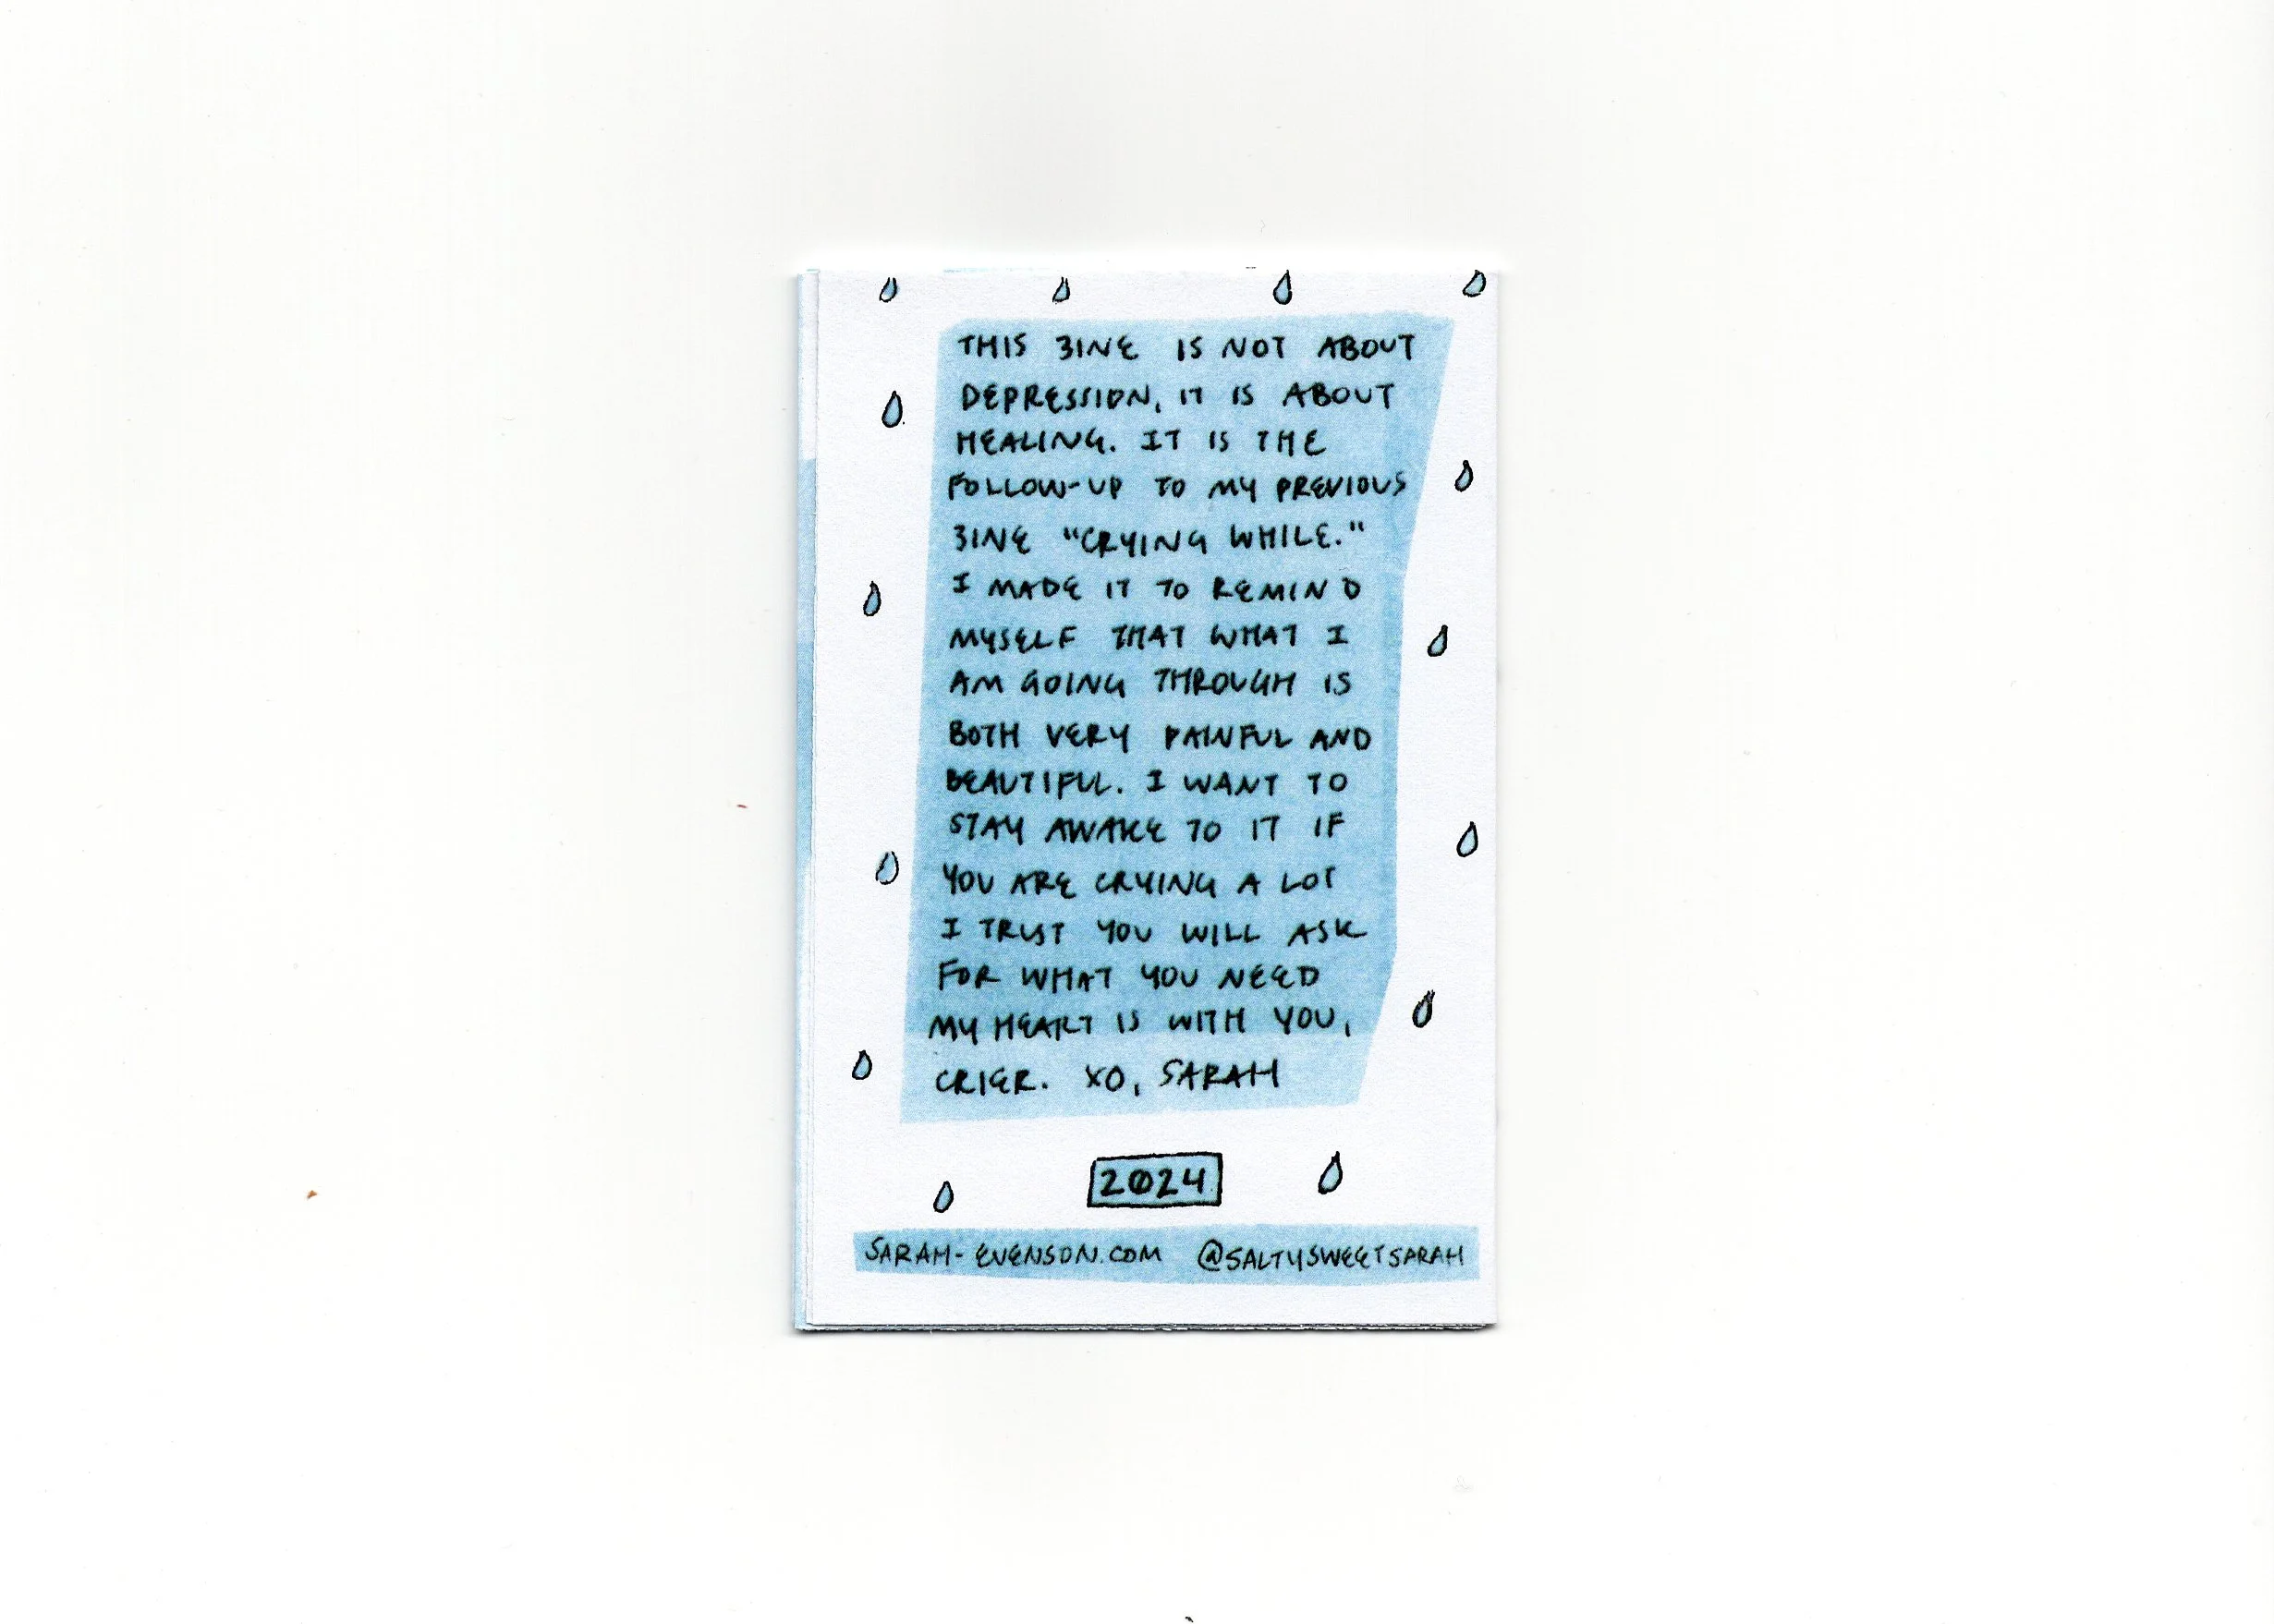 THIS ZINE IS NOT ABOUT
DEPRESSION, IT IS ABOUT
HEALING. IT IS THE
FOLLOW-UP TO MY PREVIOUS
ZINE "CRYING WHILE."
I MADE IT TO REMIND
MYSELF THAT WHAT I
AM GOING THROUGH IS
BOTH VERY PAINFUL AND
BEAUTIFUL. I WANT TO
STAY AWAKE TO IT IF
YOU ARE CRYING A LOT
I TRUST YOU WILL ASK
FOR WHAT YOU NEED
MY HEART IS WITH YOU,
CRIER. XO, SARAH
2024
SARAH-EVENSON.COM @SALTYSWEETSARAH